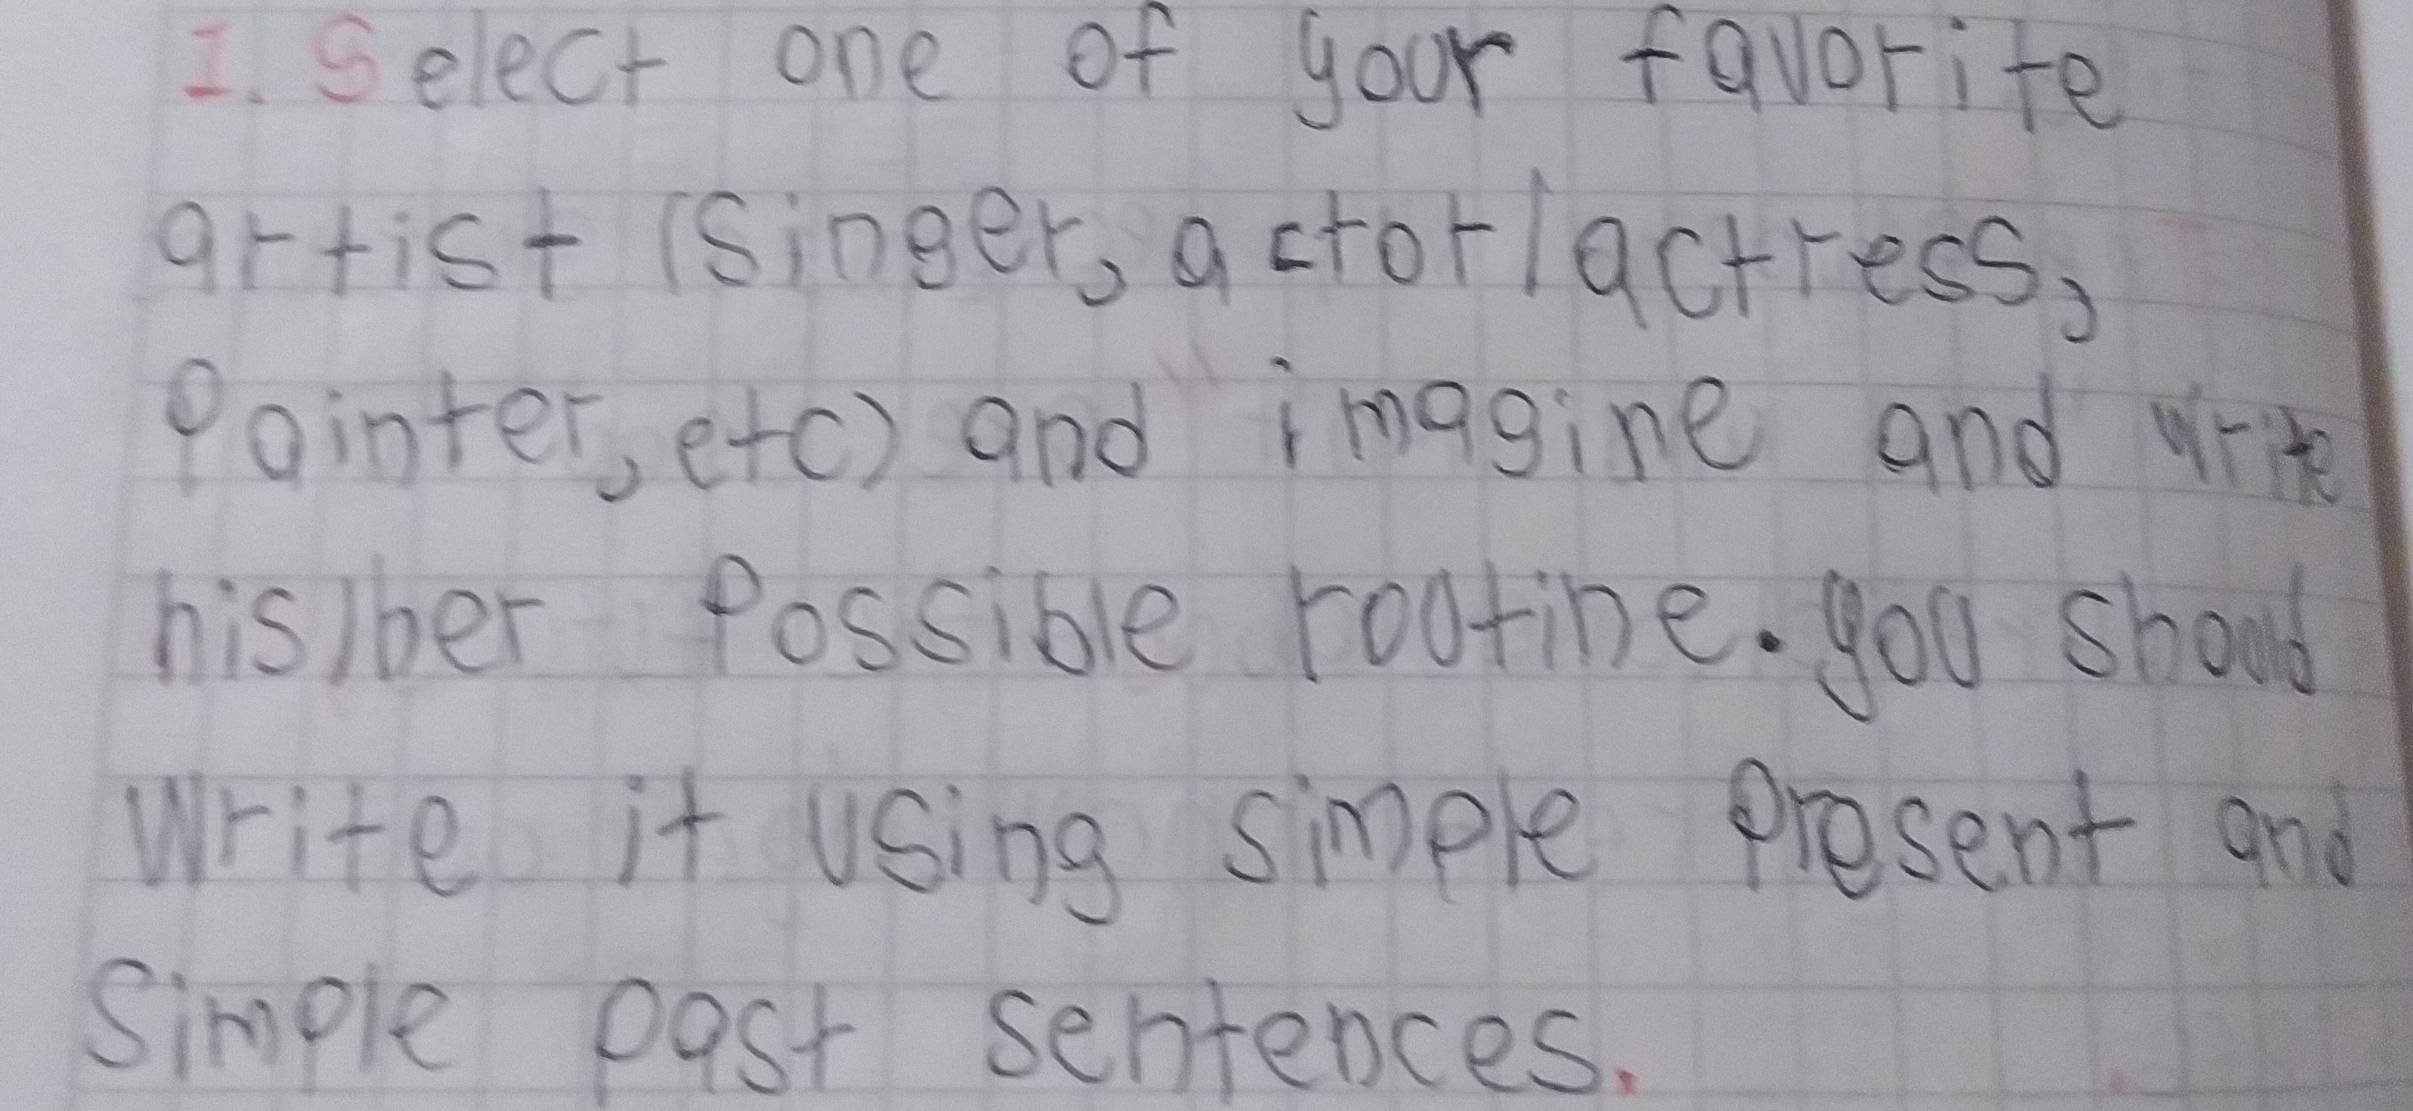 I. Select one of your favorite
artist (singer, actor/actress,
Painter, etc) and imagine and write
his/her Possible routine. you should
Write it using simple Present and
Simple past sentences.